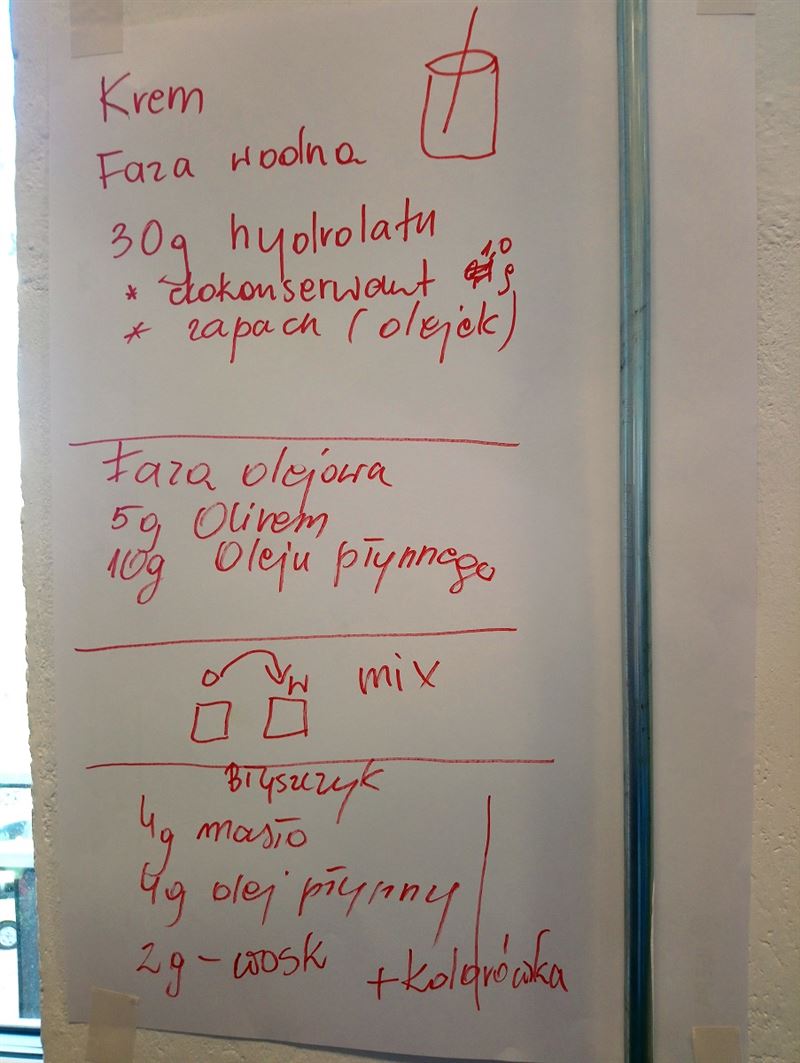 Krem
Faza wodna
30g hydrolatu
* dokonserwant 1,0 g
* zapach (olejek)
Faza olejowa
5g Olivem
10g Oleju płynnego
O W mix
Błyszczyk
4g masło
4g olej płynny
2g - wosk
+ kolorówka